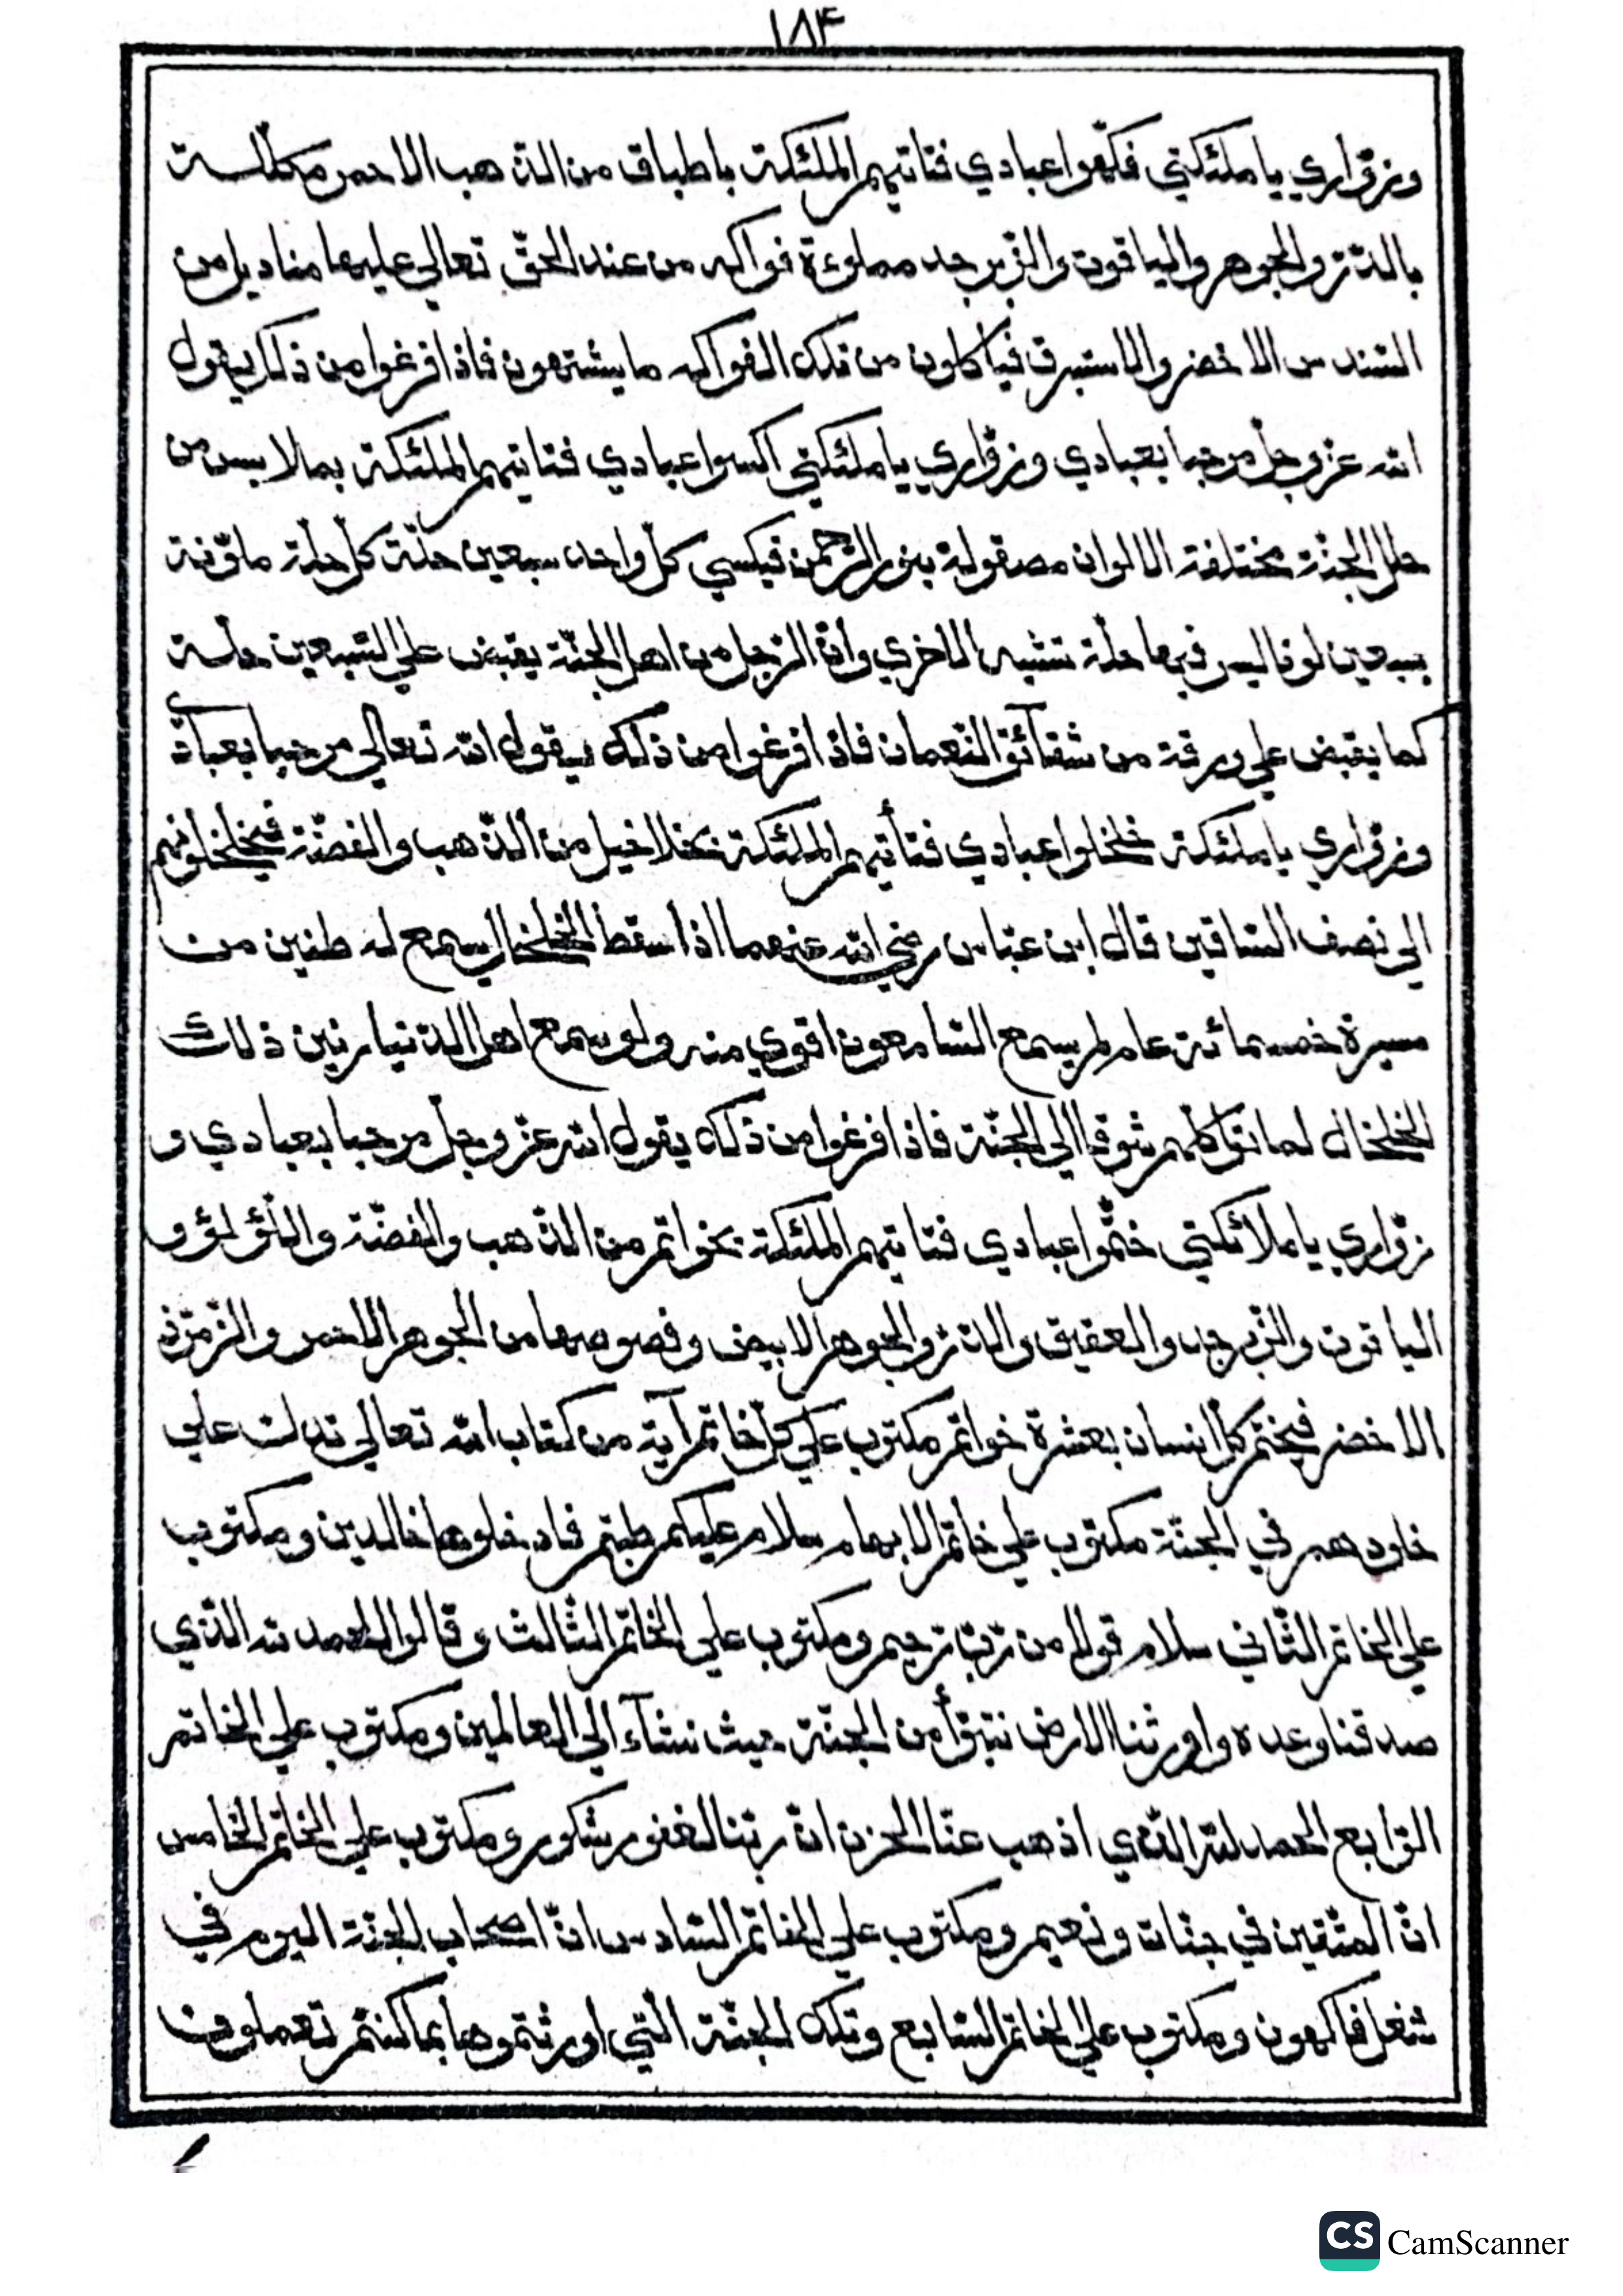 ١٨۴
وزوّاري يا ملئكتي فكّهوا عبادي فتاتيهم الملئكة باطباق من الذّهب الاحمر مكلّلة
بالدّرّ والجوهر والياقوت والزّبرجد مملوءة فواكه من عند الحقّ تعالي عليها مناديل من
السّندس الاخضر والاستبرق فياكلون من تلك الفواكه ما يشتهون فاذا فرغوا من ذلك يقول
الله عزّ وجلّ مرحبا بعبادي وزوّاري يا ملئكتي اكسوا عبادي فتاتيهم الملئكة بملابس من
حلل الجنّة مختلفة الالوان مصقولة بنور الرّحمن فيكسي كلّ واحد سبعين حلّة كلّ حلّة ملوّنة
بسبعين لونا ليس فيها حلّة تشبه الاخري وانّ الرّجل من اهل الجنّة يقبض علي السّبعين حلّة
كما يقبض علي ورقة من شقآئق النّعمان فاذا فرغوا من ذلك يقول الله تعالي مرحبا بعبادي
وزوّاري يا ملئكة خلخلوا عبادي فتأتيهم الملئكة بخلاخيل من الذّهب والفضّة فيخلخلونهم
الي نصف السّاقين قال ابن عبّاس رضي الله عنهما اذا سقط الخلخال يسمع له طنين من
مسيرة خمسمائة عام لم يسمع السّامعون اقوي منه ولو سمع اهل الدّنيا رنين ذلك
الخلخال لماتوا كلّهم شوقا الي الجنّة فاذا فرغوا من ذلك يقول الله عزّ وجلّ مرحبا بعبادي و
زوّاري يا ملائكتي ختّموا عبادي فتاتيهم الملئكة بخواتم من الذّهب والفضّة واللّؤلؤ و
الياقوت والزّبرجد والعقيق والدّرّ والجوهر الابيض وفصوصها من الجوهر الاحمر والزّمرّذ
الاخضر فيختم كلّ انسان بعشرة خواتم مكتوب علي كلّ خاتم آية من كتاب الله تعالي تدلت علي
خلودهم في الجنّة مكتوب علي خاتم الابهام سلام عليكم طبتم فادخلوها خالدين ومكتوب
علي الخاتم الثّاني سلام قولا من رّبّ رّحيم ومكتوب علي الخاتم الثّالث وقالوا الحمد لله الّذي
صدقنا وعده واورثنا الارض نتبوّأ من الجنّة حيث نشآء الي العالمين ومكتوب علي الخاتم
الرّابع الحمد لله الّذي اذهب عنّا الحزن انّ ربّنا لغفور شكور ومكتوب علي الخاتم الخامس
انّ المتّقين في جنّات ونعيم ومكتوب علي الخاتم السّادس انّ اصحاب الجنّة اليوم في
شغل فاكهون ومكتوب علي الخاتم السّابع وتلك الجنّة الّتي اورثتموها بما كنتم تعملون
CS CamScanner